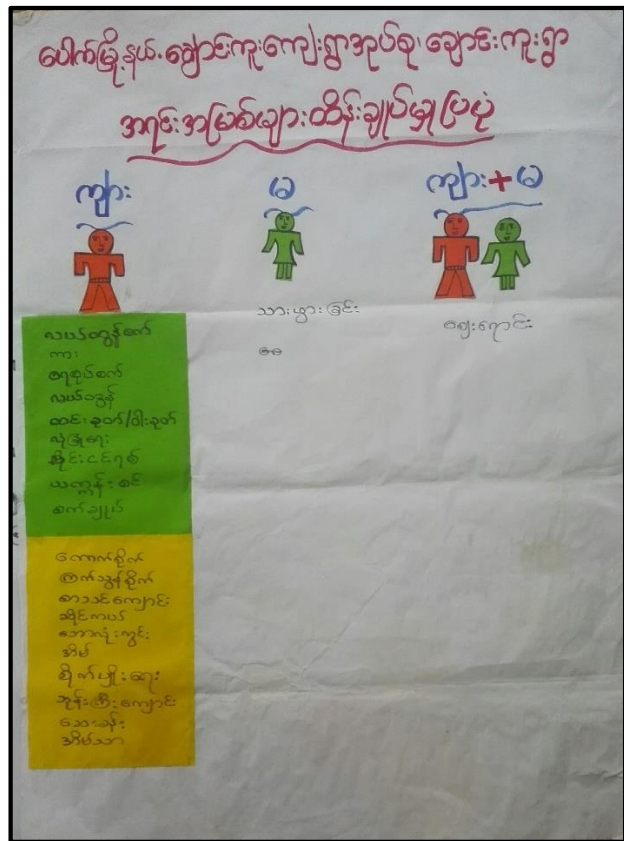 ပေါက်မြို့နယ်၊ချောင်းကူးကျေးရွာအုပ်စု၊ချောင်းကူးရွာ
အရင်းအမြစ်များထိန်းချုပ်မှုပြပုံ
ကျား
မ
ကျား+မ
သားဖွားခြင်း
ဈေးရောင်း
လယ်ထွန်စက်
ကား
ရေစုပ်စက်
လယ်ထွန်
ထင်းခုတ်/ဝါးခုတ်
လုံခြုံရေး
ယက္ကန်းစင်
စက်ချုပ်
ကောက်စိုက်
ကြက်သွန်စိုက်
စာသင်ကျောင်း
ဆိုင်ကယ်
ဘောလုံးကွင်း
အိမ်
စိုက်ပျိုးရေး
ဘုန်းကြီးကျောင်း
ဆေးခန်း
အိမ်သာ